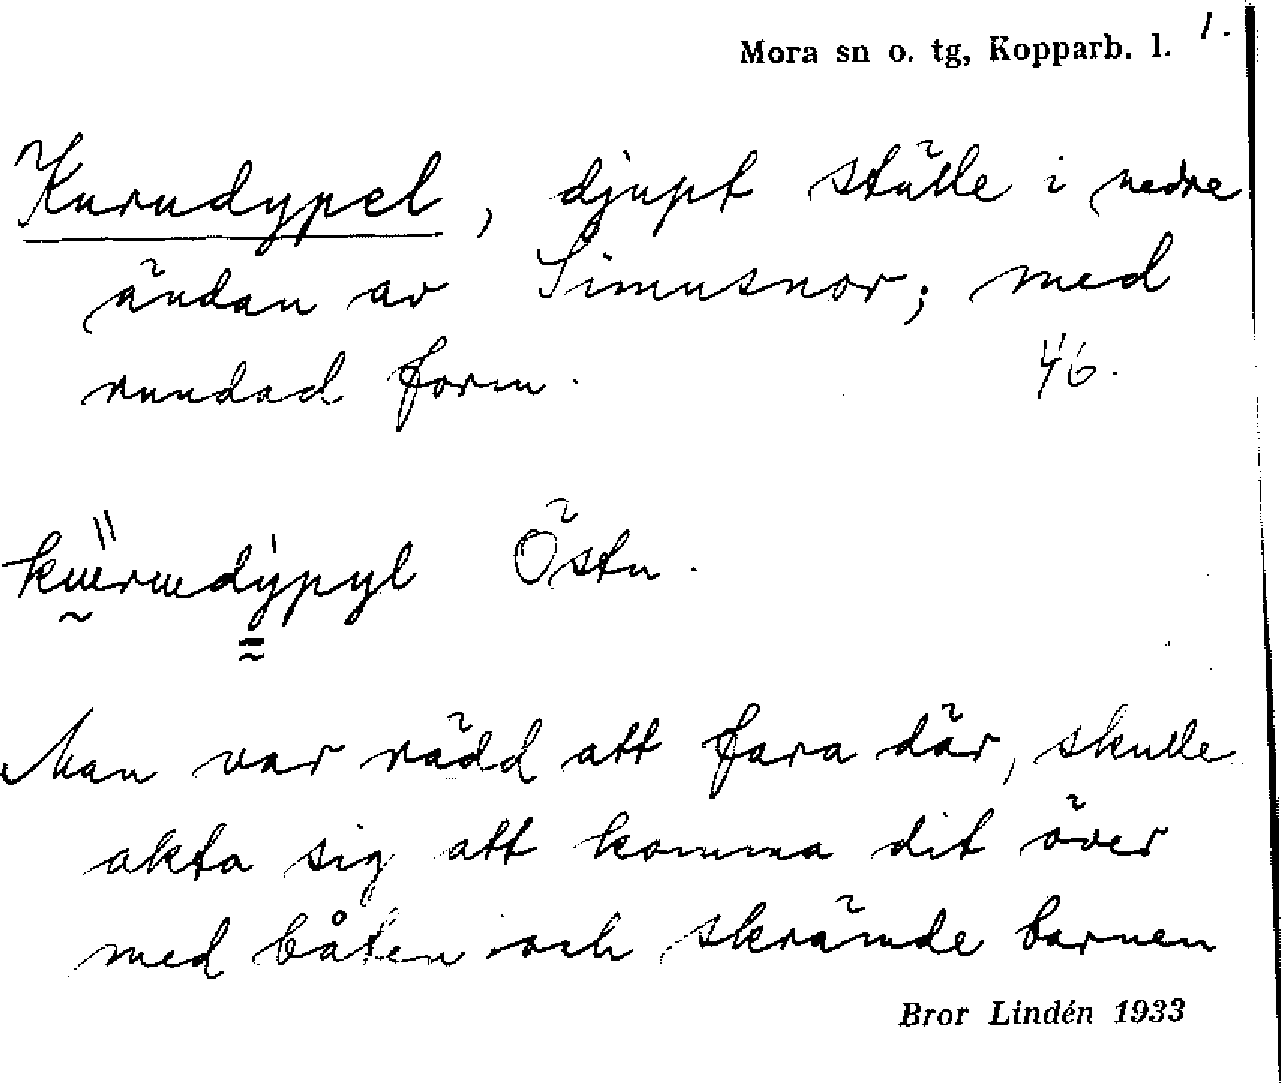 Mora sn o. tg, Kopparb. l. 1.
Kurudypel, djupt ställe i nedre
ändan av Simusnor; med
rundad form. 46.
Östn.
Man var rädd att fara där, skulle
akta sig att komma dit över
med båten och skrämde barnen
Bror Lindén 1933